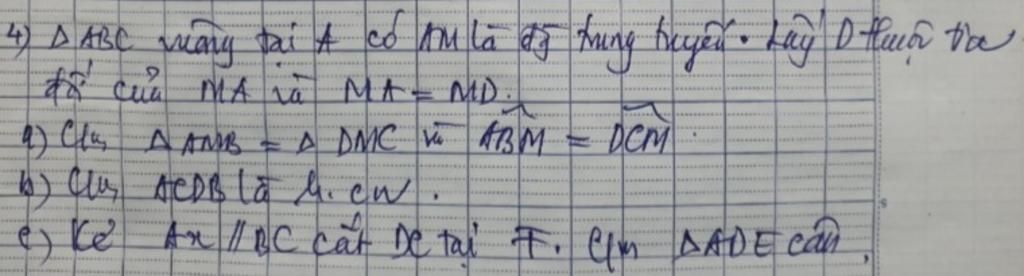 4) Δ ABC vuông tại A có AM là đg trung tuyến. Lấy D thuộc tia
đối của MA và MA = MD.
a) Cm Δ AMB = Δ DMC và ABM = DCM
b) Cm ACDB là h.cn.
c) Kẻ Ax // BC cắt DC tại F. Cm ΔADE cân.